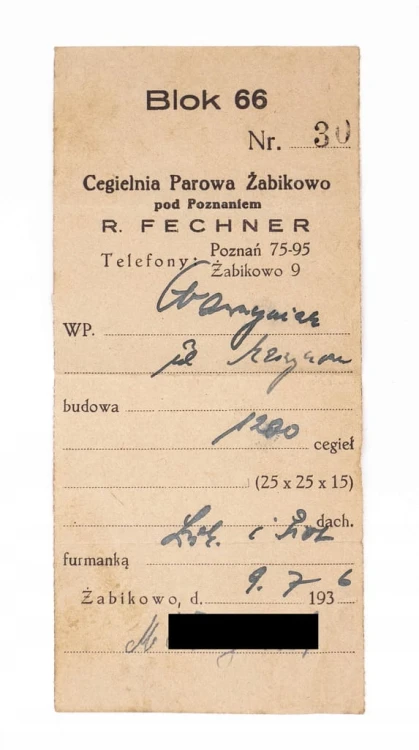 Blok 66
Nr. 30
Cegielnia Parowa Żabikowo
pod Poznaniem
R. FECHNER
Telefony: Poznań 75-95
Żabikowo 9
WP.
budowa
1200 cegieł
(25 x 25 x 15)
dach.
furmanką
Żabikowo, d. 9. 7 1936